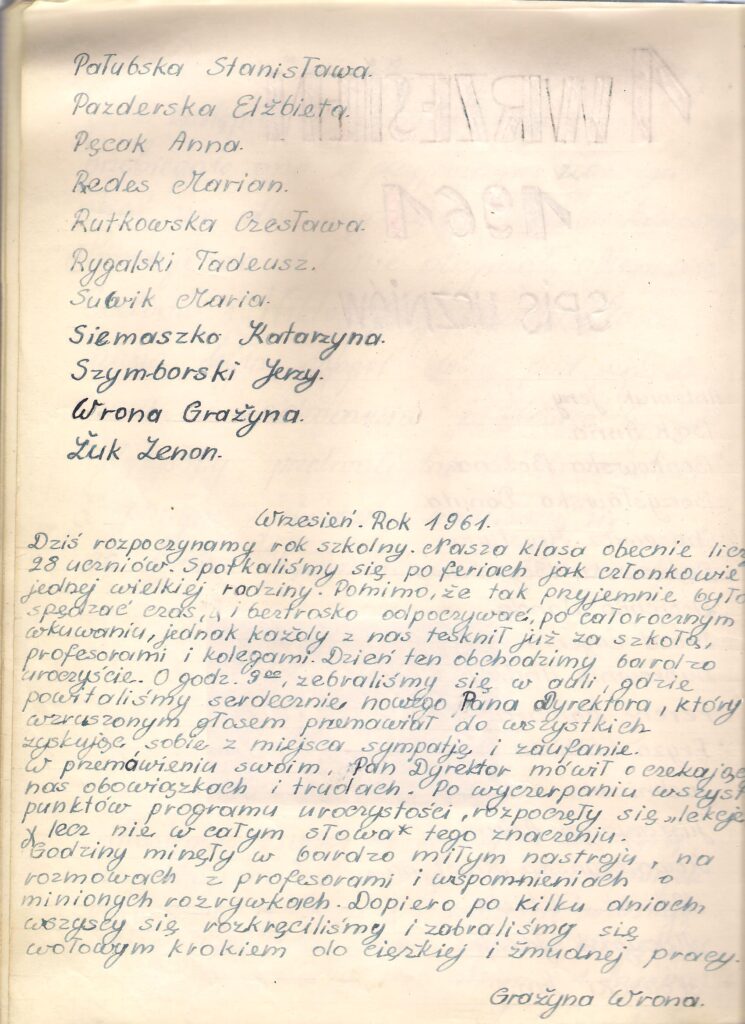 Pałubska Stanisława.
Pazderska Elżbieta.
Pęcak Anna.
Redes Marian.
Rutkowska Czesława.
Rygalski Tadeusz.
Suwik Maria.
Siemaszko Katarzyna.
Szymborski Jerzy.
Wrona Grażyna.
Żuk Zenon.
Wrzesień. Rok 1961.
Dziś rozpoczynamy rok szkolny. Nasza klasa obecnie licz
28 uczniów. Spotkaliśmy się po feriach jak członkowie
jednej wielkiej rodziny. Pomimo, że tak przyjemnie było
spędzać czas, i beztrosko odpoczywać, po całorocznym
wkuwaniu, jednak każdy z nas tesknił już za szkołą,
profesorami i kolegami. Dzień ten obchodzimy bardzo
uroczyście. O godz. 9⁰⁰, zebraliśmy się w auli, gdzie
powitaliśmy serdecznie nowego Pana Dyrektora, który
wzruszonym głosem przemawiał do wszystkich
zyskując sobie z miejsca sympatję i zaufanie.
W przemówieniu swoim, Pan Dyrektor mówił o czekając
nas obowiązkach i trudach. Po wyczerpaniu wszyst
punktów programu uroczystości, rozpoczęły się „lekcje
lecz nie w całym słowa* tego znaczeniu.
Godziny minęły w bardzo miłym nastroju, na
rozmowach z profesorami i wspomnieniach o
minionych rozrywkach. Dopiero po kilku dniach
wszyscy się rozkręciliśmy i zabraliśmy się
wołowym krokiem do ciężkiej i żmudnej pracy.
Grażyna Wrona.
1 WRZESIEŃ
1961
SPIS UCZNIÓW